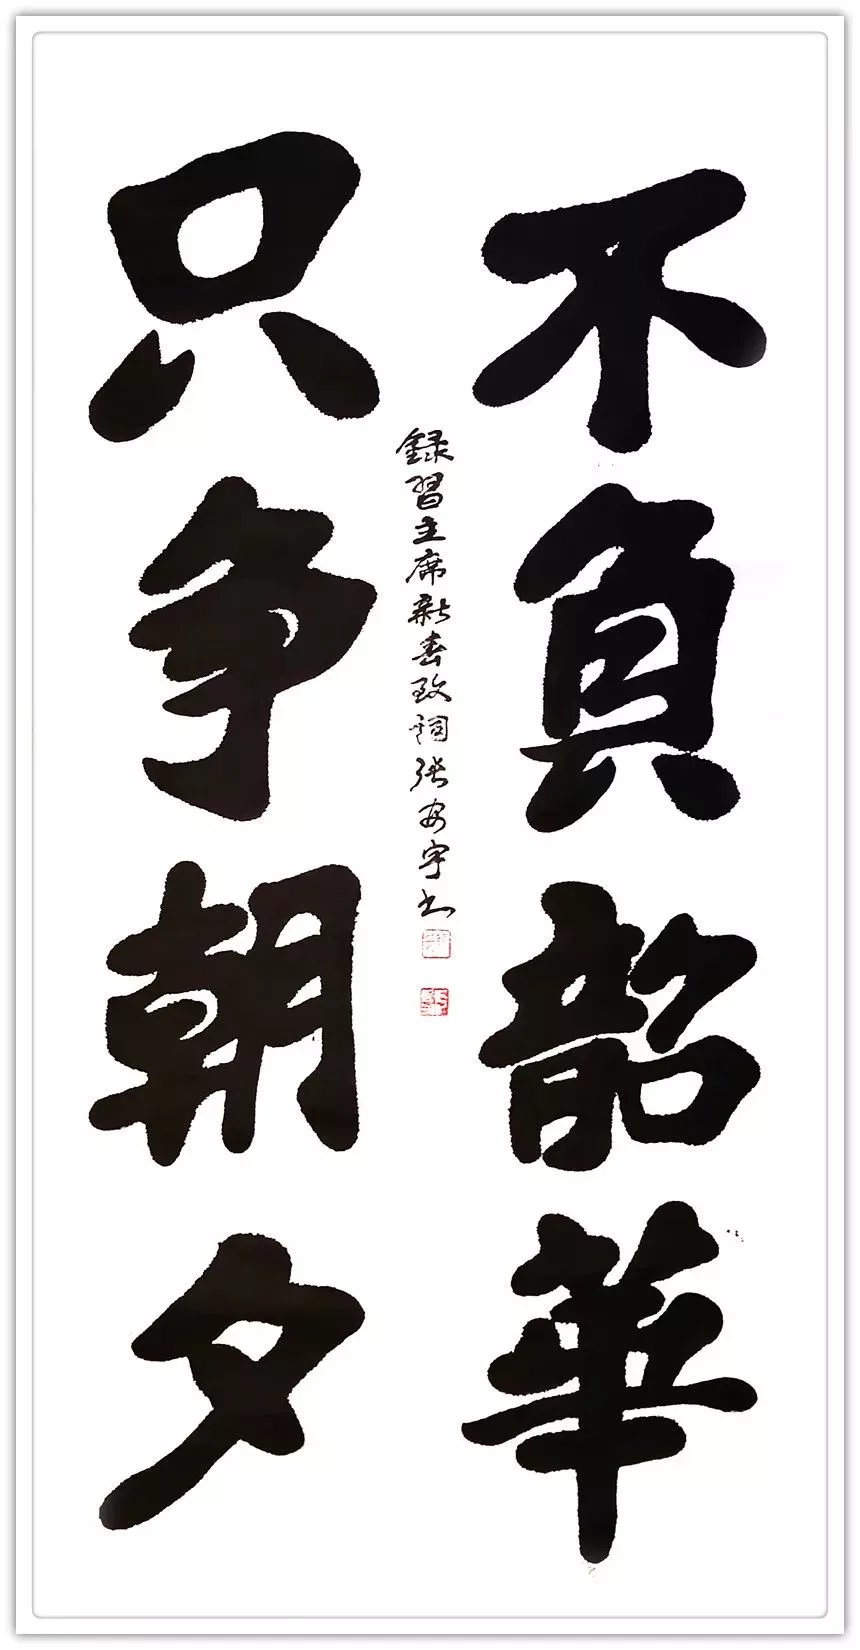 不負韶華
只争朝夕
録習主席新春致詞张安宇书